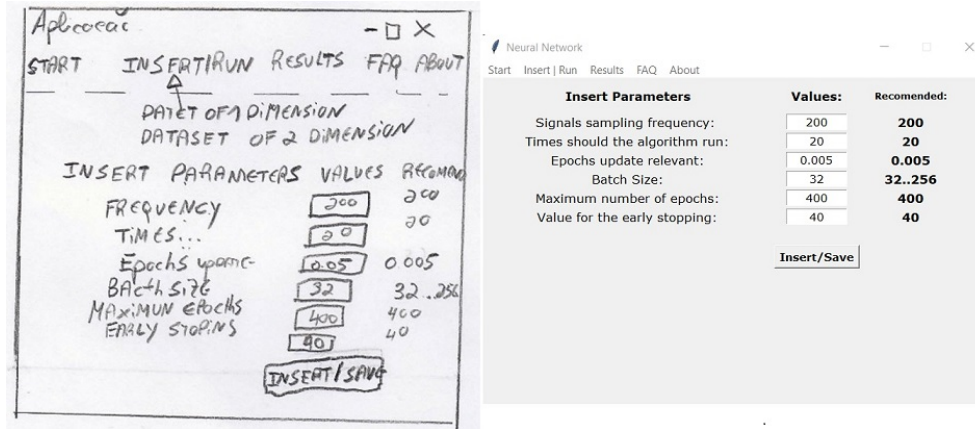 Aplicocač
START INSERT/RUN RESULTS FAQ ABOUT
DATET OF 1 DIMENSION
DATASET OF 2 DIMENSION
INSERT PARAMETERS VALUES RECOMAND
FREQUENCY 200 200
TIMES... 20 20
Epochs 0.05 0.005
BActh SizE 32 32..256
MAXIMUN EPOCHS 400 400
EARLY STOPINS 40 40
INSERT/SAVE
Neural Network
Start Insert | Run Results FAQ About
Insert Parameters Values: Recomended:
Signals sampling frequency: 200 200
Times should the algorithm run: 20 20
Epochs update relevant: 0.005 0.005
Batch Size: 32 32..256
Maximum number of epochs: 400 400
Value for the early stopping: 40 40
Insert/Save